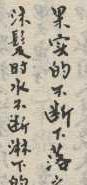 果实的不断下落
沐发时水不断淋下的